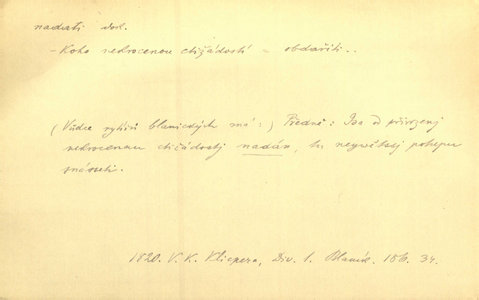 nadati dok.
- Koho nekrocenou ctižádostí = obdařiti..
(Vůdce rytířů blanických má:) Předně: Jsa od přirozenj
nekrocenau ctižádostj nadán, tu neywětssj potupu
snásseti.
1820. V. K. Klicpera, Div. 1. Blaník. 156. 34.